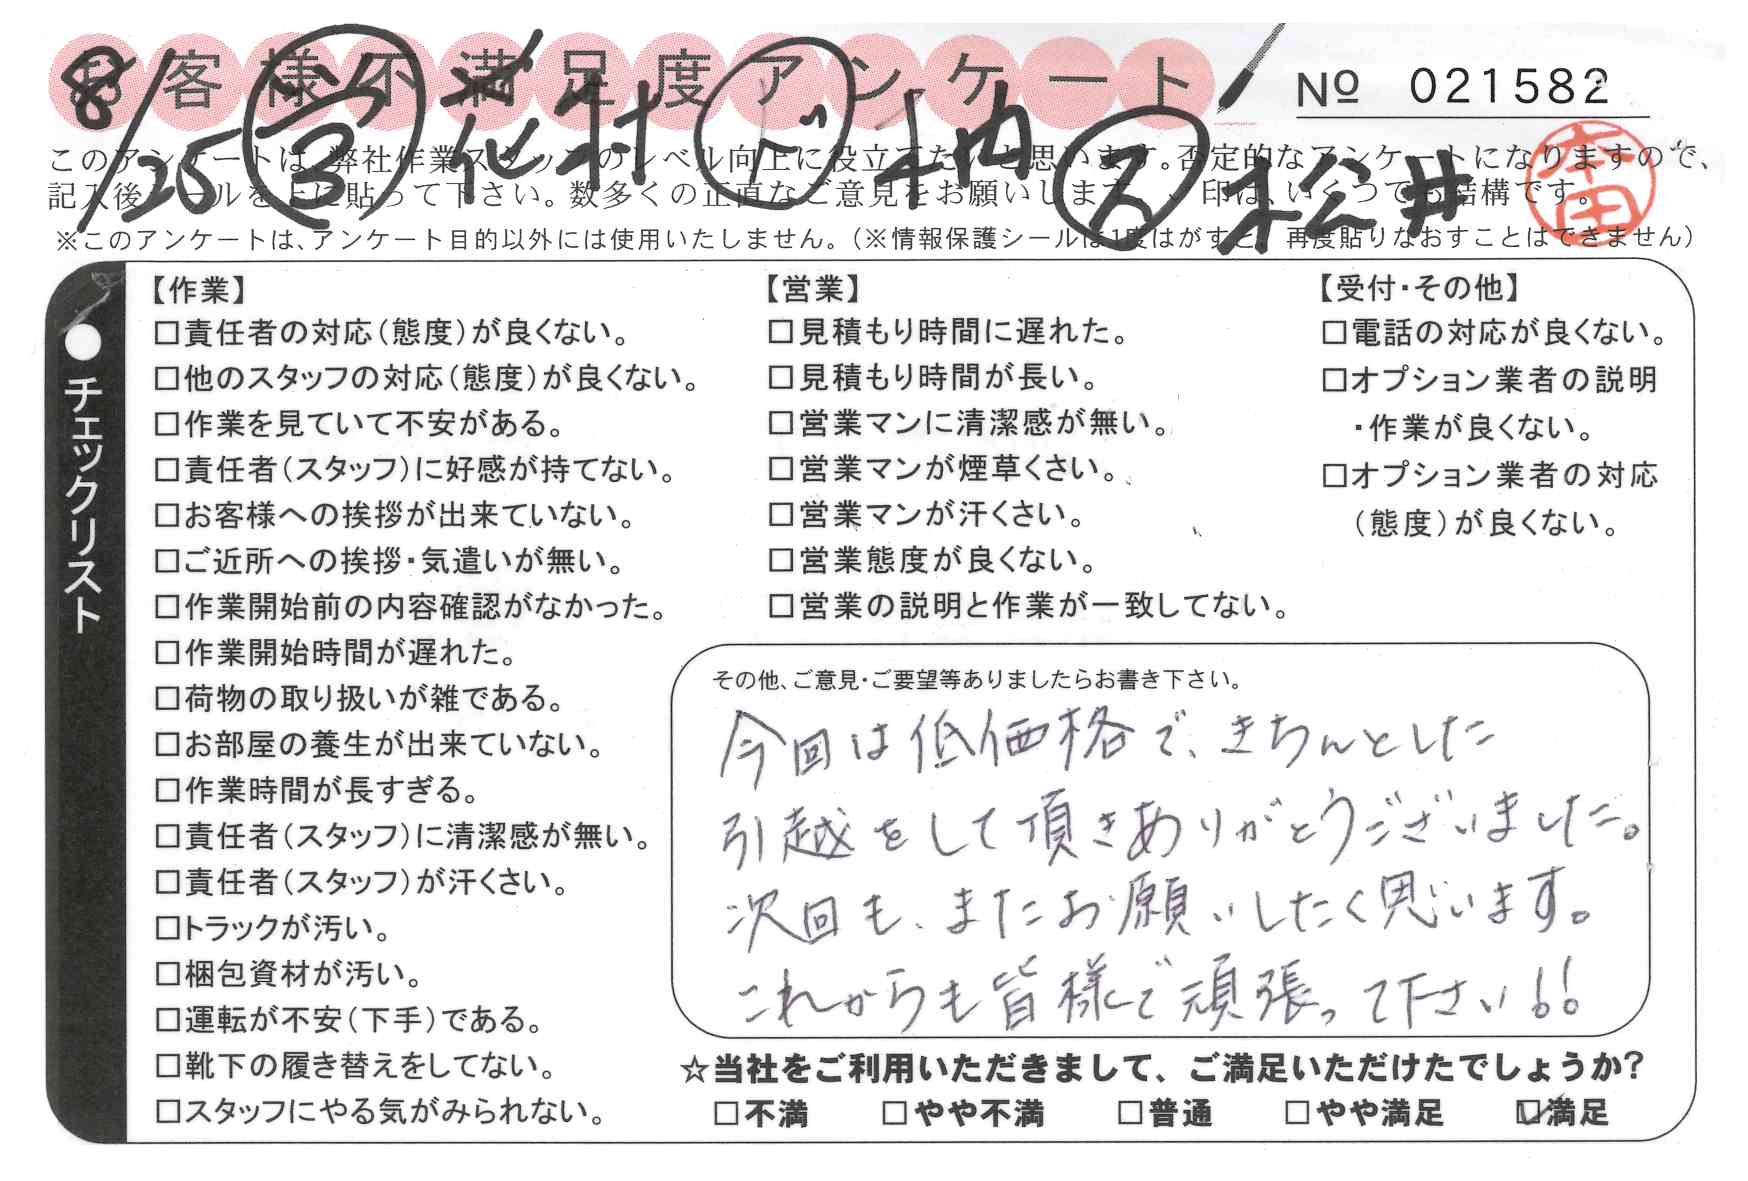 お客様不満足度アンケート
№ 021582
8/25 営 花村 ド 堀 ス 松井
本田
このアンケートは、弊社作業スタッフのレベル向上に役立てたいと思います。否定的なアンケートになりますので、
記入後シールを上に貼って下さい。数多くの正直なご意見をお願いします。、印は、いくつでも結構です。
※このアンケートは、アンケート目的以外には使用いたしません。（※情報保護シールは1度はがすと、再度貼りなおすことはできません）
●チェックリスト
【作業】
□責任者の対応（態度）が良くない。
□他のスタッフの対応（態度）が良くない。
□作業を見ていて不安がある。
□責任者（スタッフ）に好感が持てない。
□お客様への挨拶が出来ていない。
□ご近所への挨拶・気遣いが無い。
□作業開始前の内容確認がなかった。
□作業開始時間が遅れた。
□荷物の取り扱いが雑である。
□お部屋の養生が出来ていない。
□作業時間が長すぎる。
□責任者（スタッフ）に清潔感が無い。
□責任者（スタッフ）が汗くさい。
□トラックが汚い。
□梱包資材が汚い。
□運転が不安（下手）である。
□靴下の履き替えをしてない。
□スタッフにやる気がみられない。
【営業】
□見積もり時間に遅れた。
□見積もり時間が長い。
□営業マンに清潔感が無い。
□営業マンが煙草くさい。
□営業マンが汗くさい。
□営業態度が良くない。
□営業の説明と作業が一致してない。
【受付・その他】
□電話の対応が良くない。
□オプション業者の説明
・作業が良くない。
□オプション業者の対応
（態度）が良くない。
その他、ご意見・ご要望等ありましたらお書き下さい。
今回は低価格で、きちんとした
引越をして頂きありがとうございました。
次回も、またお願いしたく思います。
これからも皆様で頑張って下さい!!
☆当社をご利用いただきまして、ご満足いただけたでしょうか?
□不満 □やや不満 □普通 □やや満足 ☑満足